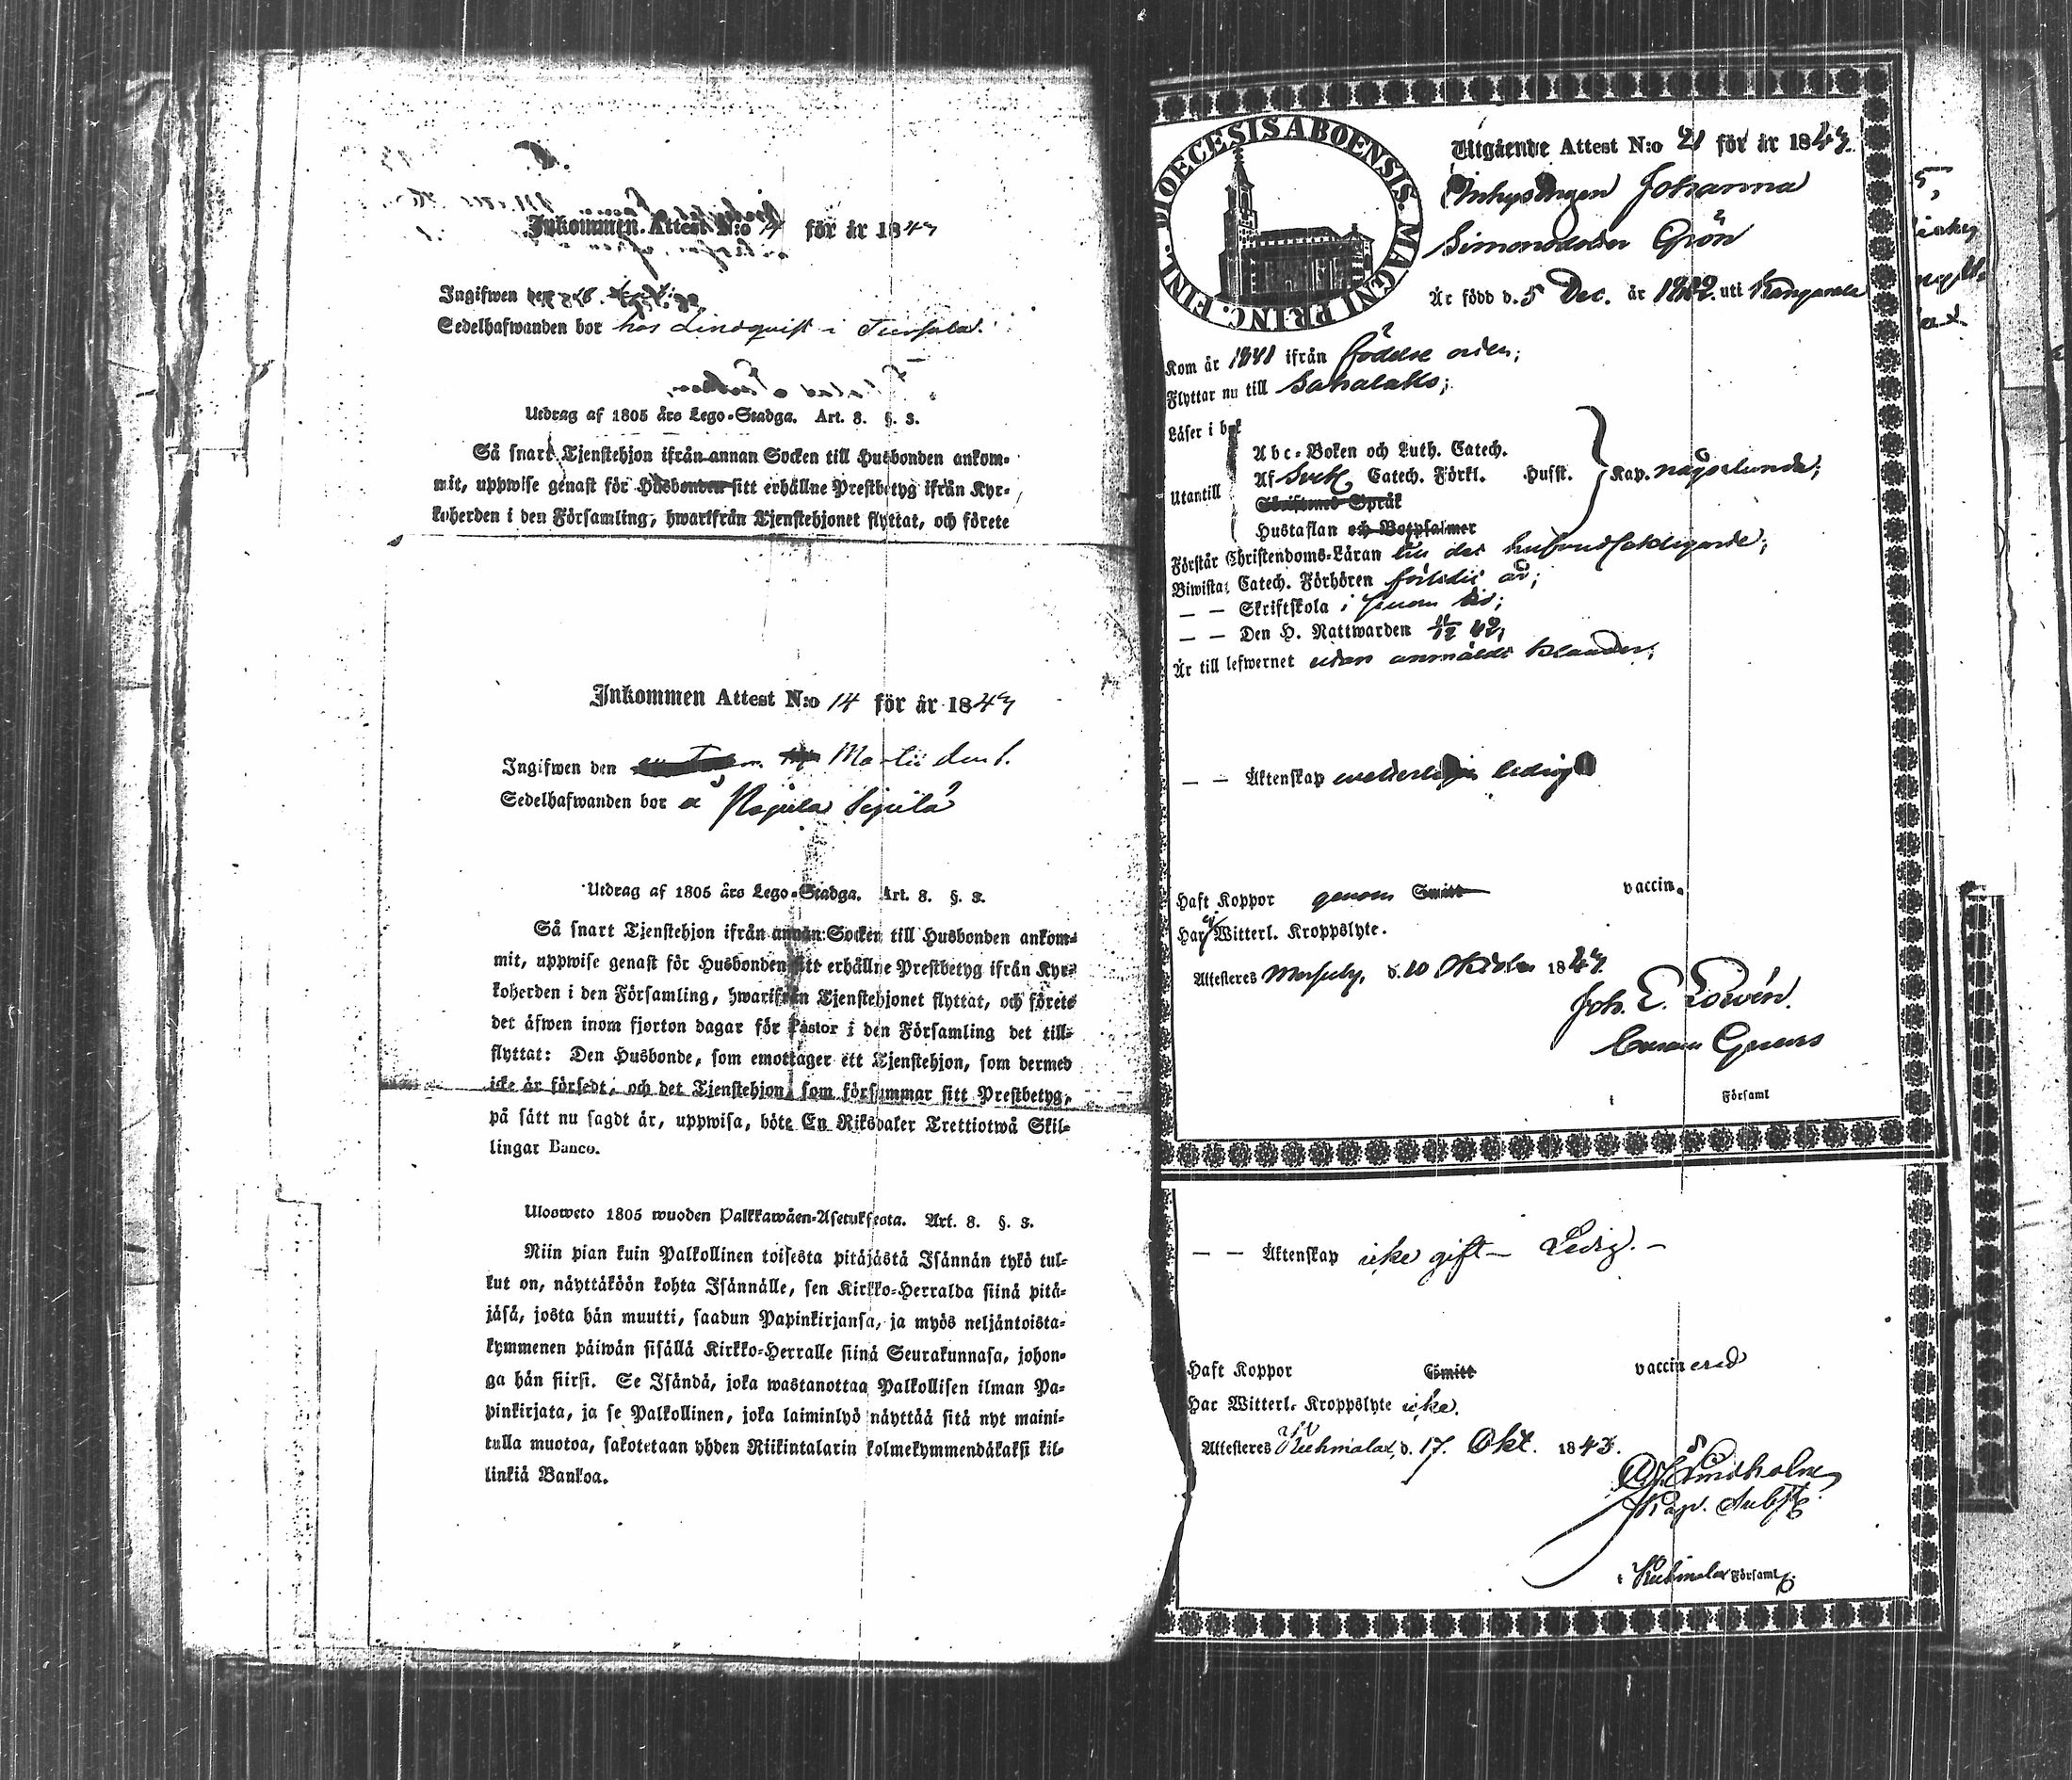 Inkommen Attest N:o 14 för år 1843
Ingifwen den
Sedelhafwanden bor hos Lindqvist i
Utdrag af 1805 års Lego-Stadga. Art. 8. §. 3.
Så snart Tjenstehjon ifrån annan Socken till Husbonden ankom-
mit, uppwise genast för Husbonden sitt erhållne Prestbetyg ifrån Kyr-
koherden i den Församling, hwarifrån Tjenstehjonet flyttat, och förete
Inkommen Attest N:o 14 för år 1843
Ingifwen den Martii den 1.
Sedelhafwanden bor å
Utdrag af 1805 års Lego-Stadga. Art. 8. §. 3.
Så snart Tjenstehjon ifrån annan Socken till Husbonden ankom-
mit, uppwise genast för Husbonden sitt erhållne Prestbetyg ifrån Kyr-
koherden i den Församling, hwarifrån Tjenstehjonet flyttat, och förete
det äfwen inom fjorton dagar för Pastor i den Församling det till-
flyttat: Den Husbonde, som emottager ett Tjenstehjon, som dermed
icke är försedt, och det Tjenstehjon, som försummar sitt Prestbetyg,
på sätt nu sagdt är, uppwisa, böte En Riksdaler Trettiotwå Skil-
lingar Banco.
Ulosweto 1805 wuoden Palkkawäen-Asetuksesta. Art. 8. §. 3.
Niin pian kuin Palkollinen toisesta pitäjästä Isännän tykö tul-
kut on, näyttäköön kohta Isännälle, sen Kirkko-Herralda siinä pitä-
jäsä, josta hän muutti, saadun Papinkirjansa, ja myös neljäntoista-
kymmenen päiwän sisällä Kirkko-Herralle siinä Seurakunnasa, johon-
ga hän siirsi. Se Isändä, joka wastanottaa Palkollisen ilman Pa-
pinkirjata, ja se Palkollinen, joka laiminlyö näyttää sitä nyt maini-
tulla muotoa, sakotetaan yhden Riikintalarin kolmekymmendäkaksi kil-
linkiä Bankoa.
DIOECESIS ABOENSIS. MAGNI PRINC. FINL.
Utgående Attest N:o 21 för år 1843.
Inhysingen Johanna
Simonsdoter Grön
Är född d. 5 Dec. år 1822 uti Kangasala
Kom år 1841 ifrån födelse orten;
Flyttar nu till Sahalaks;
Läser i bok
Utantill
Abc-Boken och Luth. Catech.
Af Catech. Förkl. Husst.
Skriftenes Språk
Hustaflan och Botpsalmer
Kap. någorlunda;
Förstår Christendoms-Läran till det
Biwistat Catech. Förhören förledit år;
— — Skriftskola i
— — Den H. Nattwarden 11/12 42;
Är till lefwernet utan anmäldt klander;
— — Äktenskap ledig
Haft Koppor genom Smitt vaccin.
Har ej Witterl. Kroppslyte.
Attesteres d. 10 Oktober 1843.
Joh. E.
Församl
— — Äktenskap icke gift — Ledig. —
Haft Koppor Smitt vaccinerad
Har Witterl. Kroppslyte icke.
Attesteres Kuhmalax, d. 17. Okt. 1843.
Lindholm
Kap. Subst.
i Kuhmalax Församl.